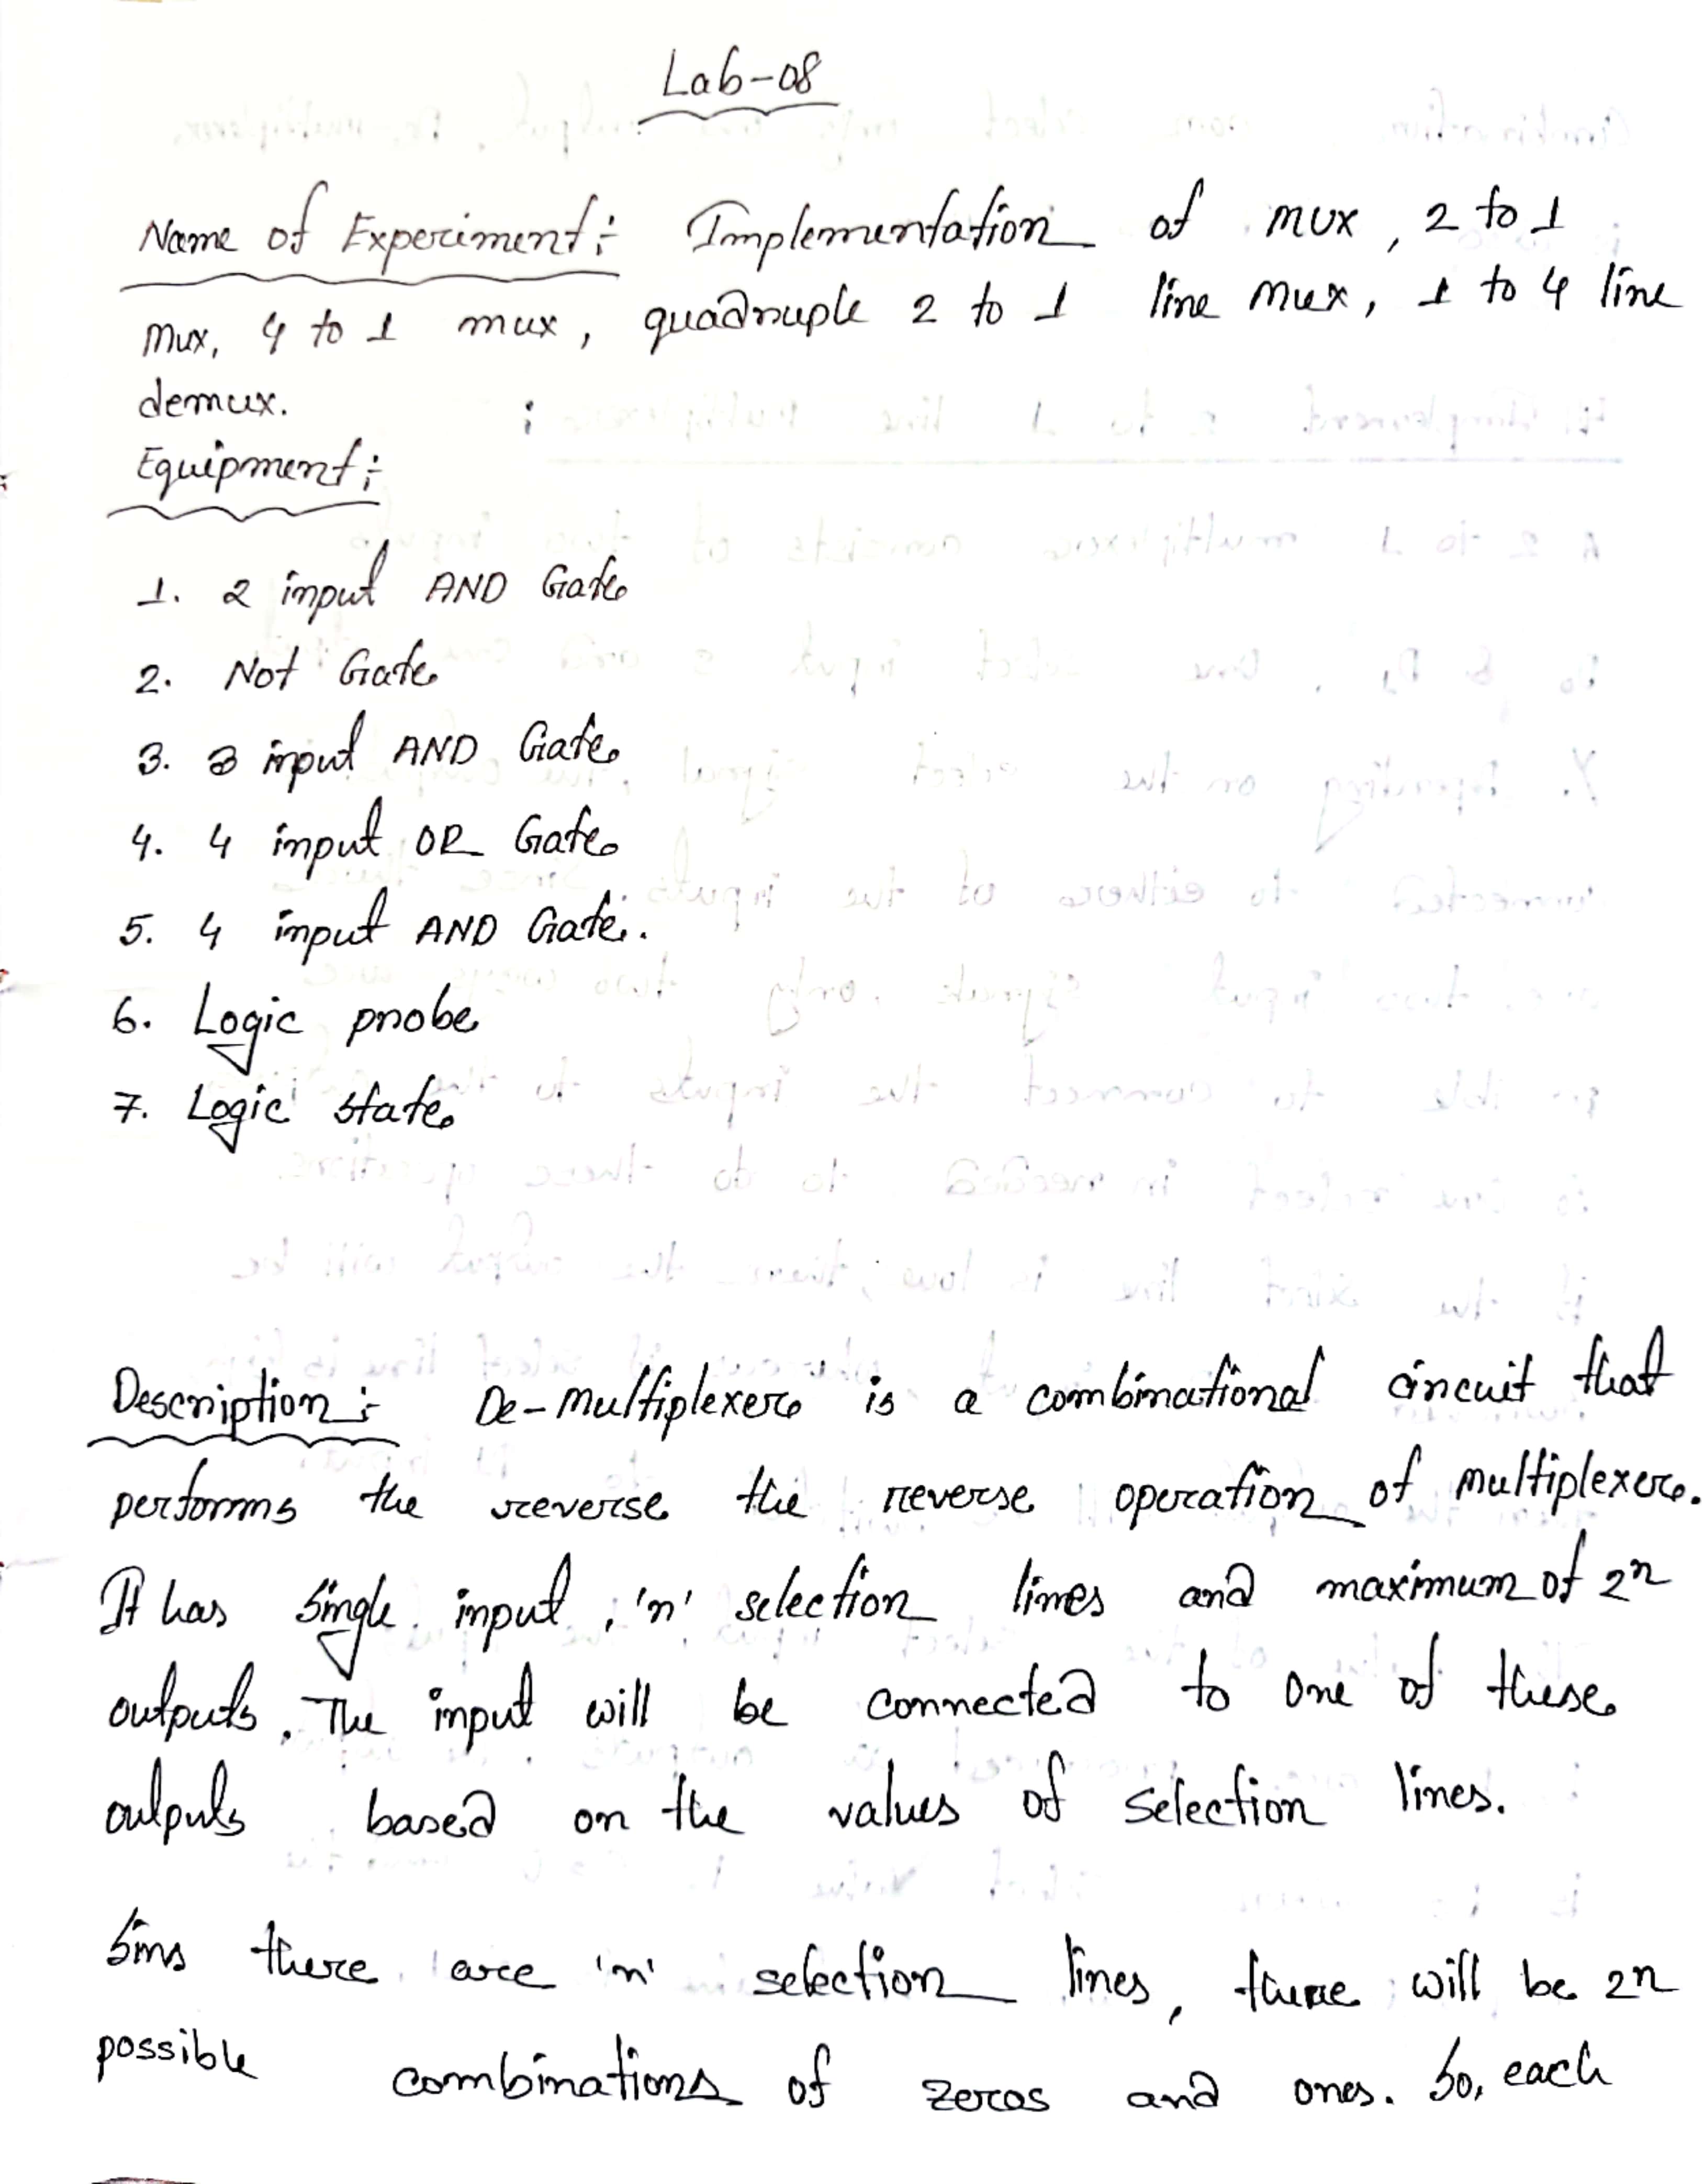 Lab-08
Name of Experiment: Implementation of mux, 2 to 1
Mux, 4 to 1 mux, quadruple 2 to 1 line mux, 1 to 4 line
demux.
Equipment:
1. 2 input AND Gate
2. Not Gate
3. 3 input AND Gate
4. 4 input OR Gate
5. 4 input AND Gate.
6. Logic probe
7. Logic state
Description: De-multiplexer is a combinational circuit that
performs the reverse the reverse operation of multiplexer.
It has single input, 'n' selection lines and maximum of 2ⁿ
outputs. The input will be connected to one of these
outputs based on the values of selection lines.
Sins there are 'n' selection lines, there will be 2n
possible combinations of zeros and ones. So, each